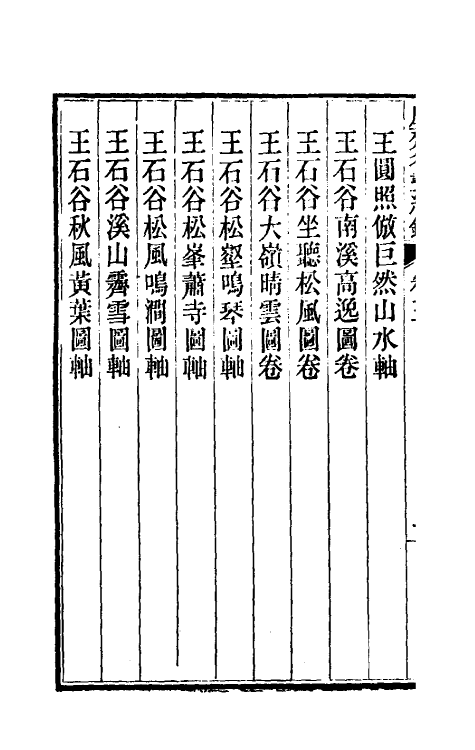 王圓照倣巨然山水軸
王石谷南溪高逸圖卷
王石谷坐聽松風圖卷
王石谷大嶺晴雲圖卷
王石谷松壑鳴琴圖軸
王石谷松峯蕭寺圖軸
王石谷松風鳴澗圖軸
王石谷溪山霽雪圖軸
王石谷秋風黃葉圖軸